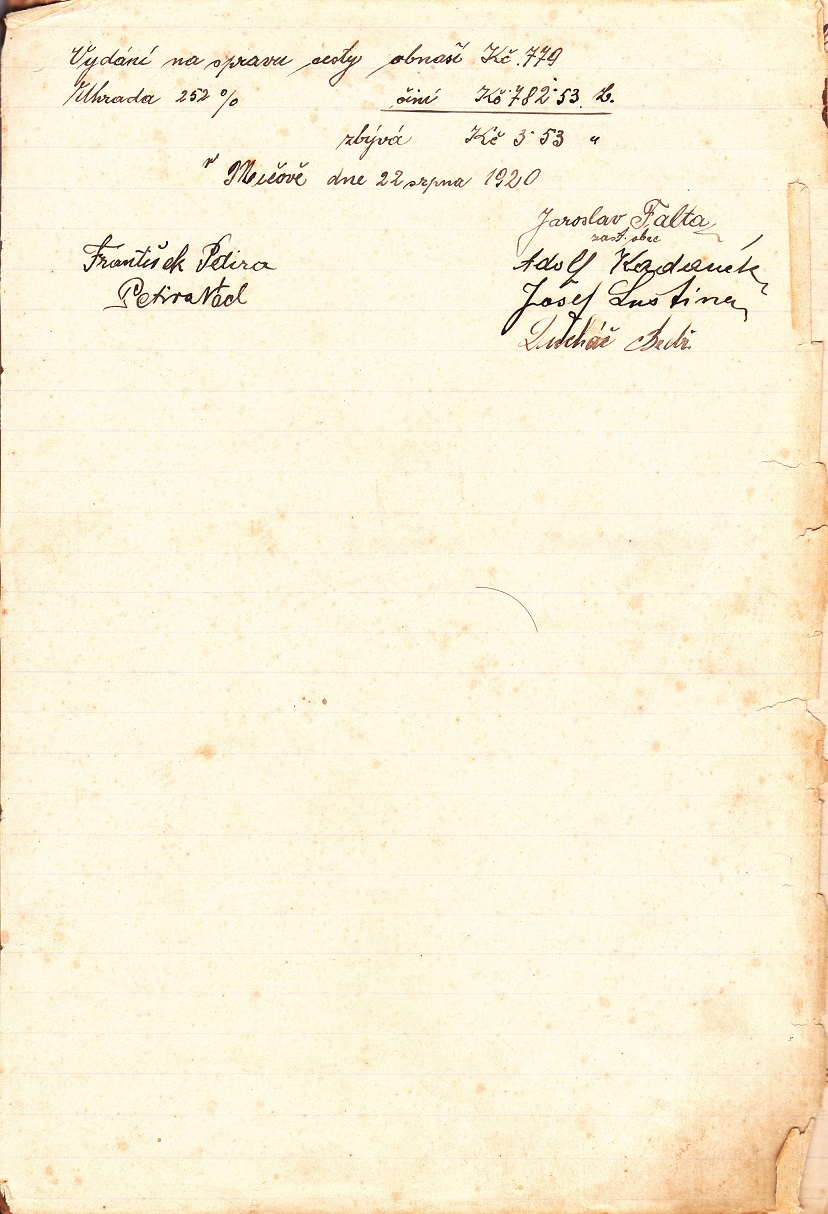 Vydání na spravu cesty obnaší Kč. 779
Uhrada 252 % činí Kč 782·53.
zbývá Kč 3·53 "
v Mičově dne 22 srpna 1920
Jaroslav Falta
zást. obce
František Petira
Adolf Kadaník
Petira Václ
Josef Luština